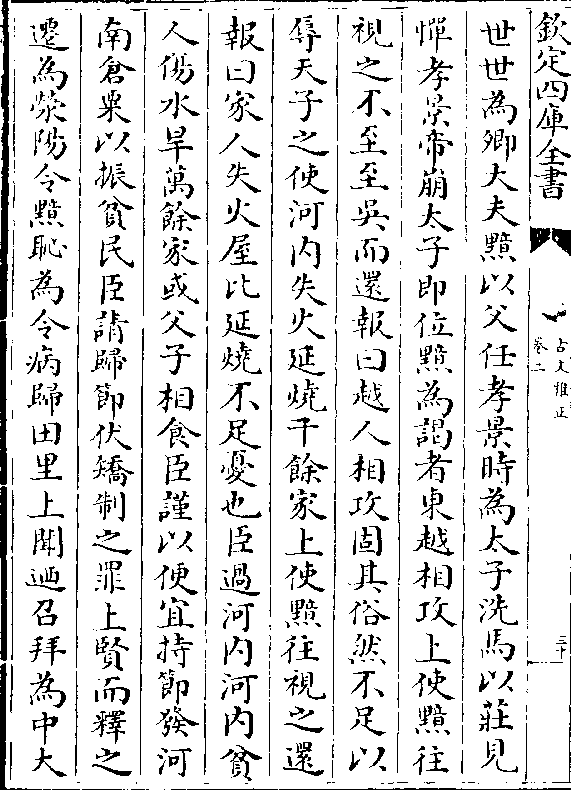 欽定四庫全書
古文雅正
卷二
三十
世世為卿大夫黯以父任孝景時為太子洗馬以莊見
憚孝景帝崩太子即位黯為謁者東越相攻上使黯往
視之不至至吳而還報曰越人相攻固其俗然不足以
辱天子之使河内失火延燒千餘家上使黯往視之還
報曰家人失火屋比延燒不足憂也臣過河内河内貧
人傷水旱萬餘家或父子相食臣謹以便宜持節發河
南倉粟以振貧民臣請歸節伏矯制之罪上賢而釋之
遷為滎陽令黯恥為令病歸田里上聞迺召拜為中大